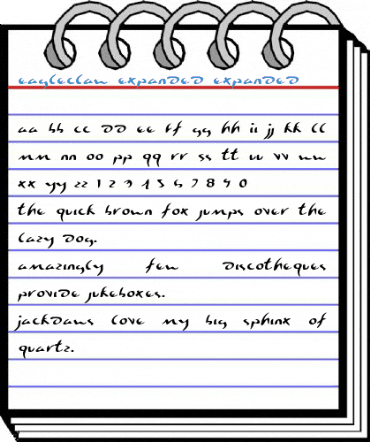 eagleclaw expanded expanded
aa bb cc dd ee ff gg hh ii jj kk ll
mm nn oo pp qq rr ss tt uu vv ww
xx yy zz 1 2 3 4 5 6 7 8 9 0
the quick brown fox jumps over the
lazy dog.
amazingly few discotheques
provide jukeboxes.
jackdaws love my big sphinx of
quartz.